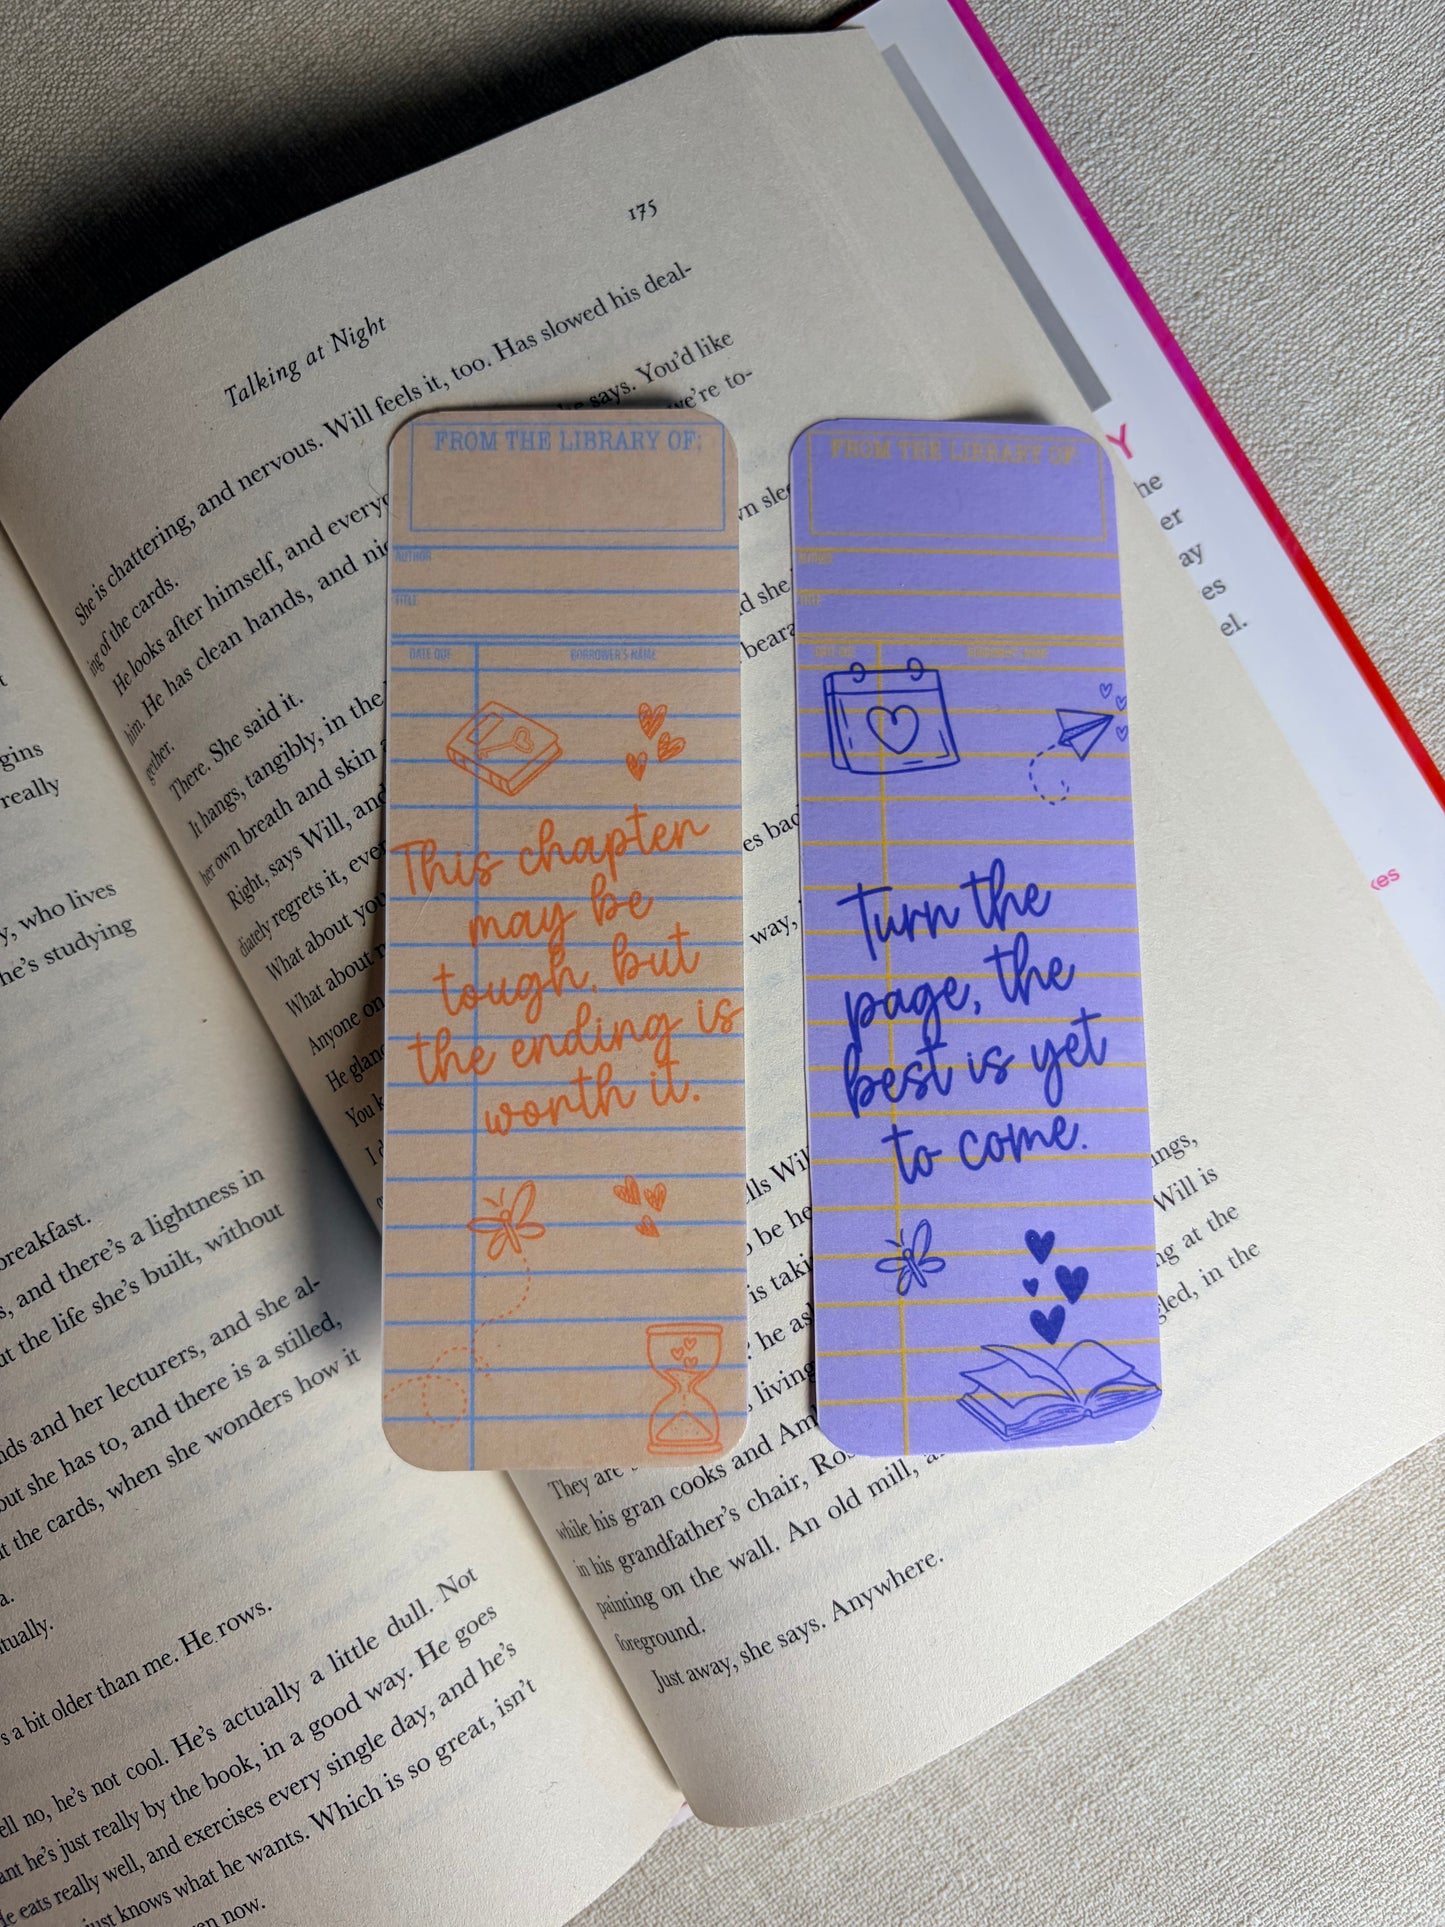 175
Talking at Night
She is chattering, and nervous. Will feels it, too. Has slowed his deal-
ing of the cards.
He looks after himself, and everyo
says. You'd like
him. He has clean hands, and nic
we're to-
gether.
wn slee
There. She said it.
d she
It hangs, tangibly, in the
beara
her own breath and skin
Right, says Will, and
es bac
diately regrets it, ever
What about you
way,
What about
Anyone on
He glanc
You k
I d
ells Wil
ings,
be he
Will is
is taki
ng at the
he as
gled, in the
living
They are
while his gran cooks and Am
in his grandfather's chair, Ros
painting on the wall. An old mill,
foreground.
Just away, she says. Anywhere.
FROM THE LIBRARY OF:
AUTHOR
TITLE
DATE DUE
BORROWER'S NAME
This chapter
may be
tough, but
the ending is
worth it.
FROM THE LIBRARY OF:
AUTHOR
TITLE
DATE DUE
BORROWER'S NAME
Turn the
page, the
best is yet
to come.
gins
really
y, who lives
he's studying
breakfast.
s, and there's a lightness in
ut the life she's built, without
nds and her lecturers, and she al-
but she has to, and there is a stilled,
t the cards, when she wonders how it
a.
tually.
s a bit older than me. He rows.
ell no, he's not cool. He's actually a little dull. Not
ant he's just really by the book, in a good way. He goes
He eats really well, and exercises every single day, and he's
just knows what he wants. Which is so great, isn't
en now.
Y
he
er
ay
es
el.
kes